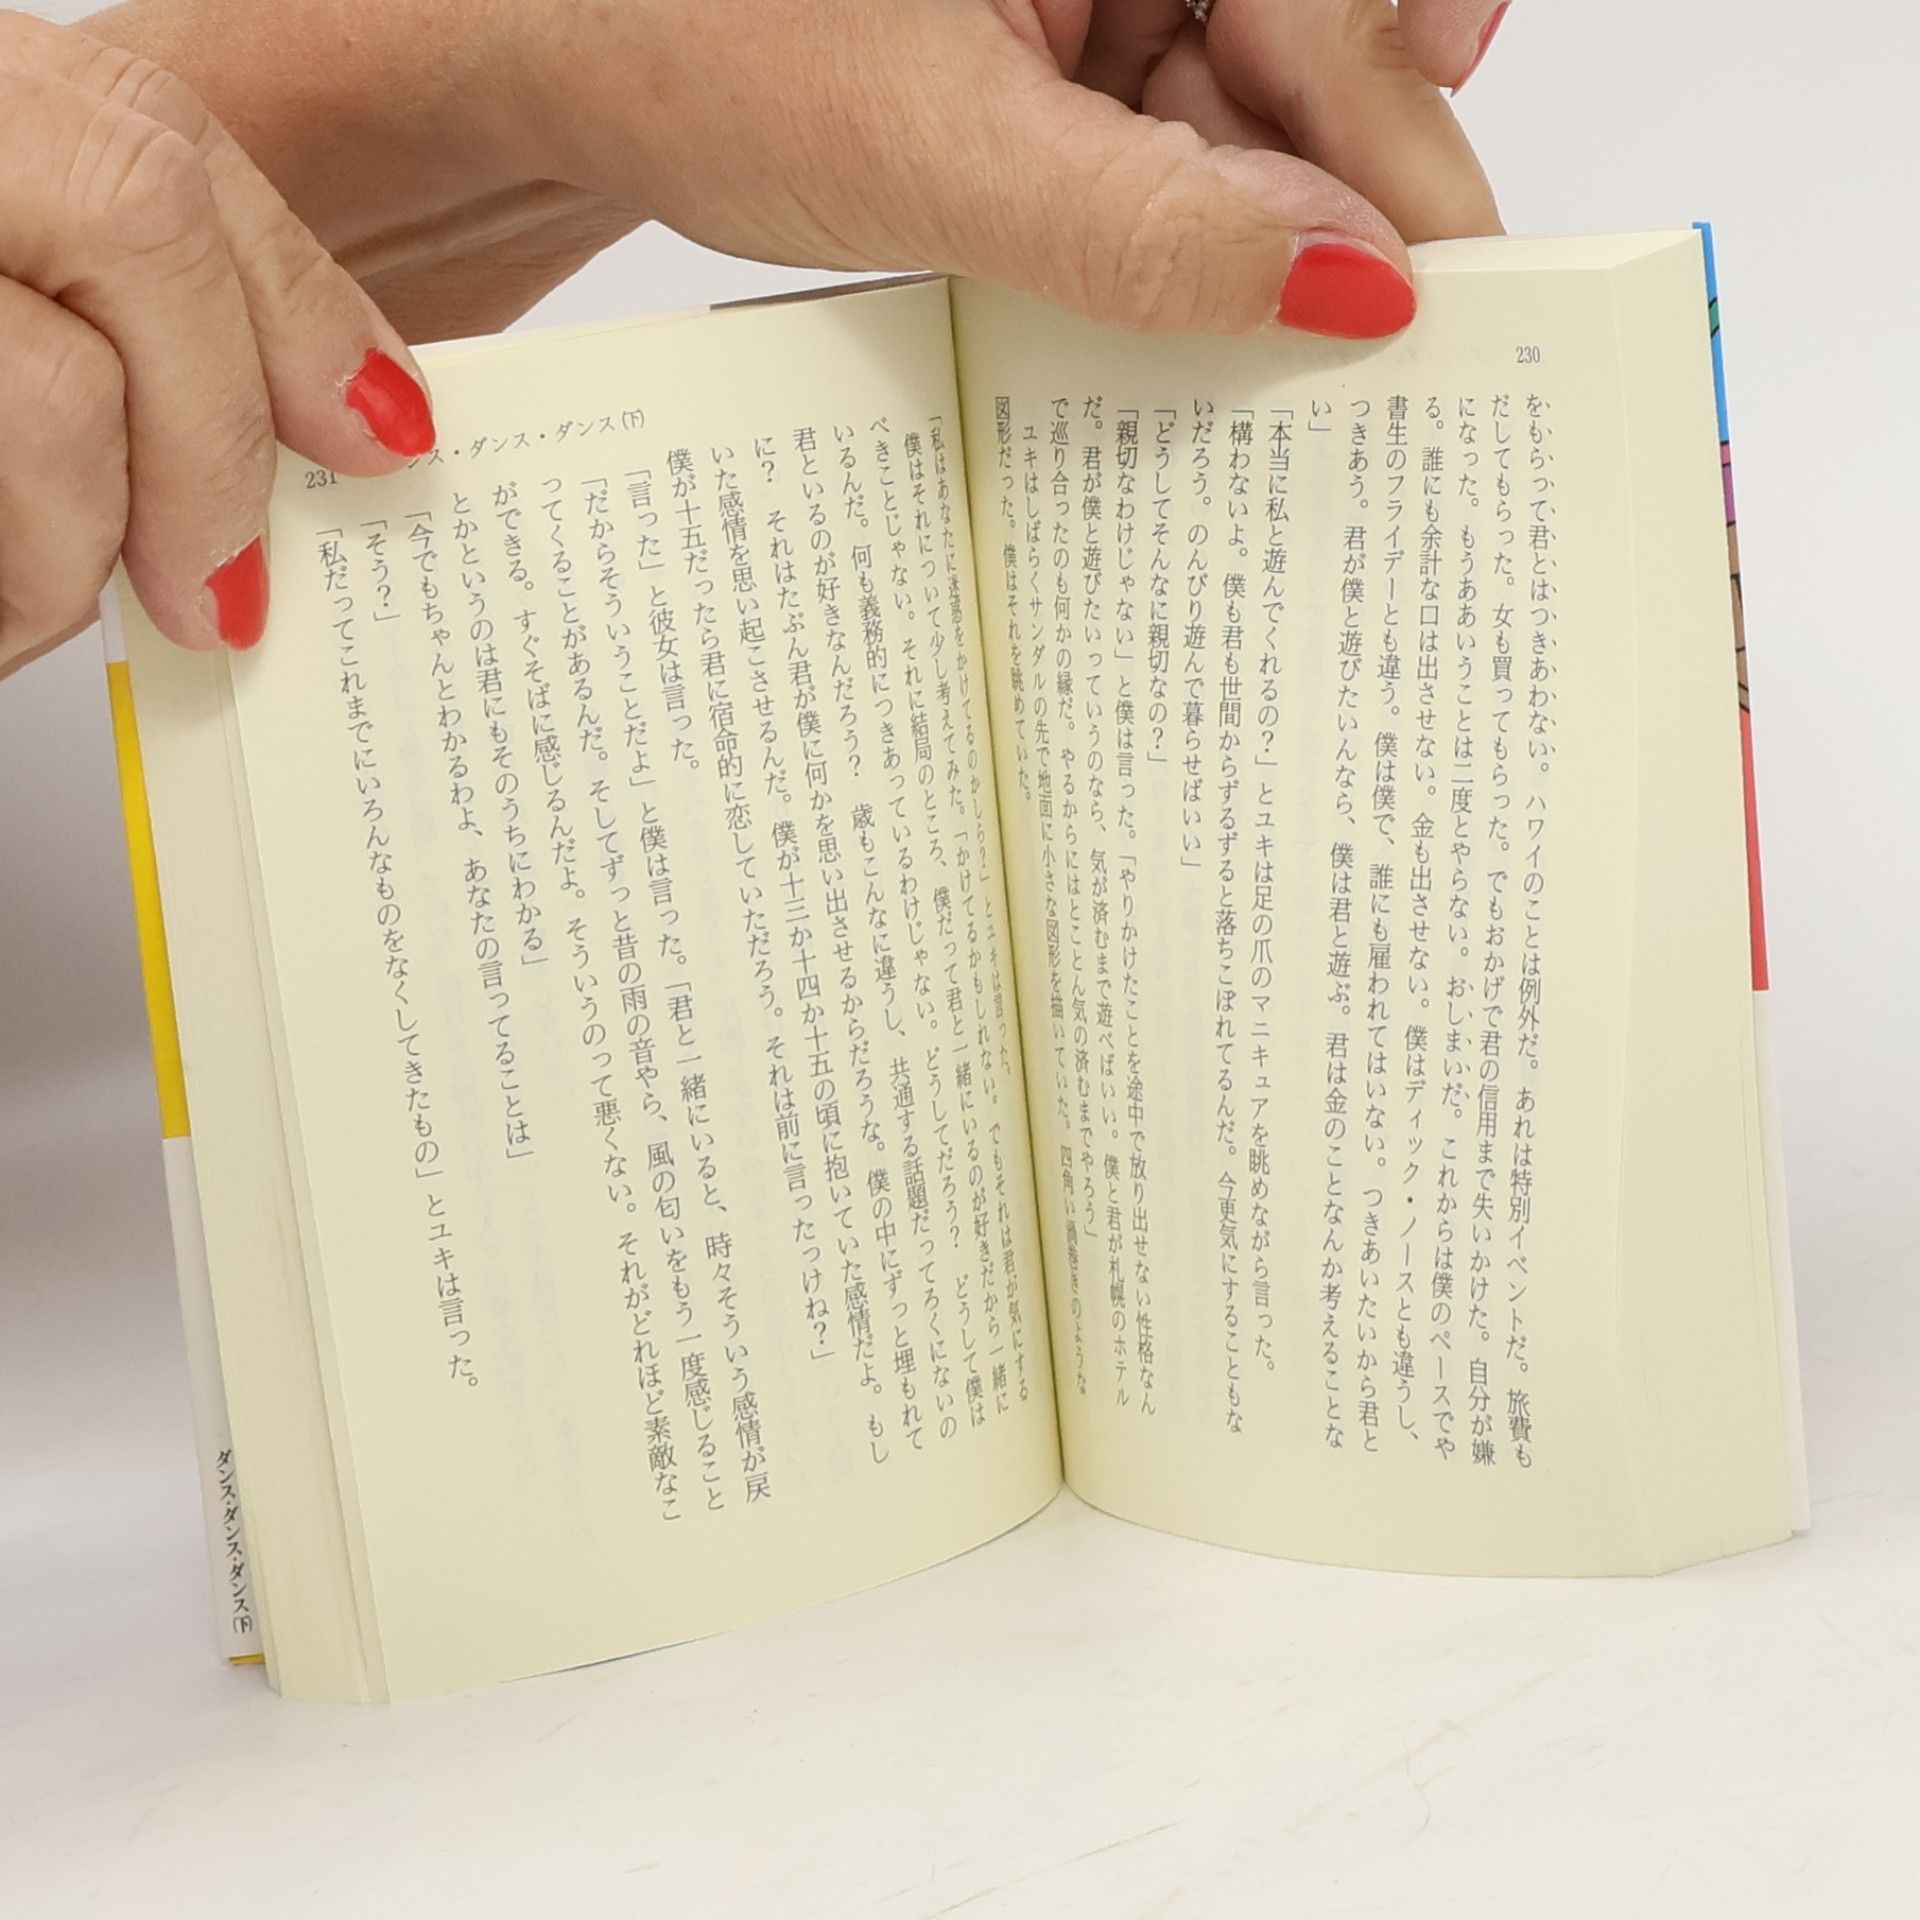 230
をもらって君とはつきあわない。ハワイのことは例外だ。あれは特別イベントだ。旅費も
だしてもらった。女も買ってもらった。でもおかげで君の信用まで失いかけた。自分が嫌
になった。もうああいうことは二度とやらない。おしまいだ。これからは僕のペースでや
る。誰にも余計な口は出させない。金も出させない。僕はディック・ノースとも違うし、
書生のフライデーとも違う。僕は僕で、誰にも雇われてはいない。つきあいたいから君と
つきあう。君が僕と遊びたいんなら、僕は君と遊ぶ。君は金のことなんか考えることな
い」
「本当に私と遊んでくれるの？」とユキは足の爪のマニキュアを眺めながら言った。
「構わないよ。僕も君も世間からずるずると落ちこぼれてるんだ。今更気にすることもな
いだろう。のんびり遊んで暮らせばいい」
「どうしてそんなに親切なの？」
「親切なわけじゃない」と僕は言った。「やりかけたことを途中で放り出せない性格なん
だ。君が僕と遊びたいっていうのなら、気が済むまで遊べばいい。僕と君が札幌のホテル
で巡り合ったのも何かの縁だ。やるからにはとことん気の済むまでやろう」
ユキはしばらくサンダルの先で地面に小さな図形を描いていた。四角い渦巻きのような
図形だった。僕はそれを眺めていた。
231
ンス・ダンス・ダンス(下)
「私はあなたに迷惑をかけてるのかしら？」とユキは言った。
僕はそれについて少し考えてみた。「かけてるかもしれない。でもそれは君が気にする
べきことじゃない。それに結局のところ、僕だって君と一緒にいるのが好きだから一緒に
いるんだ。何も義務的につきあっているわけじゃない。どうしてだろう？　どうして僕は
君といるのが好きなんだろう？　歳もこんなに違うし、共通する話題だってろくにないの
に？　それはたぶん君が僕に何かを思い出させるからだろうな。僕の中にずっと埋もれて
いた感情を思い起こさせるんだ。僕が十三か十四か十五の頃に抱いていた感情だよ。もし
僕が十五だったら君に宿命的に恋していただろう。それは前に言ったっけね？」
「言った」と彼女は言った。
「だからそういうことだよ」と僕は言った。「君と一緒にいると、時々そういう感情が戻
ってくることがあるんだ。そしてずっと昔の雨の音やら、風の匂いをもう一度感じること
ができる。すぐそばに感じるんだよ。そういうのって悪くない。それがどれほど素敵なこ
とかというのは君にもそのうちにわかる」
「今でもちゃんとわかるわよ、あなたの言ってることは」
「そう？」
「私だってこれまでにいろんなものをなくしてきたもの」とユキは言った。
ダンス・ダンス・ダンス(下)